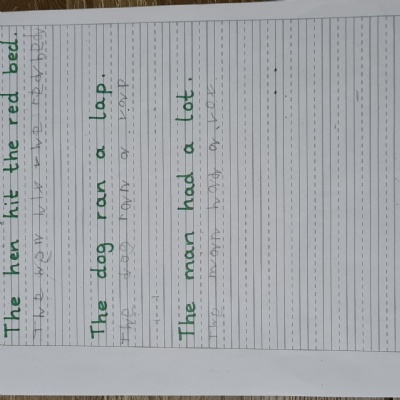 The hen hit the red bed.
The hen hit the red bed
The dog ran a lap.
The dog ran a lap
The man had a lot.
The man had a lot